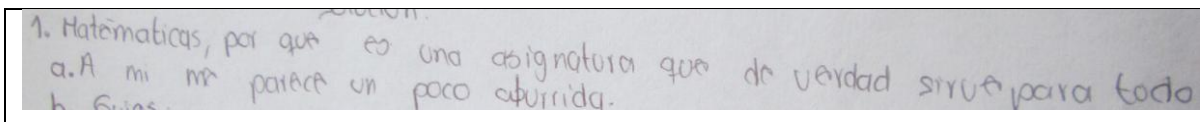 1. Matématicas, por que es una asignatura que de verdad sirve para todo
a. A mi me parece un poco aburrida.